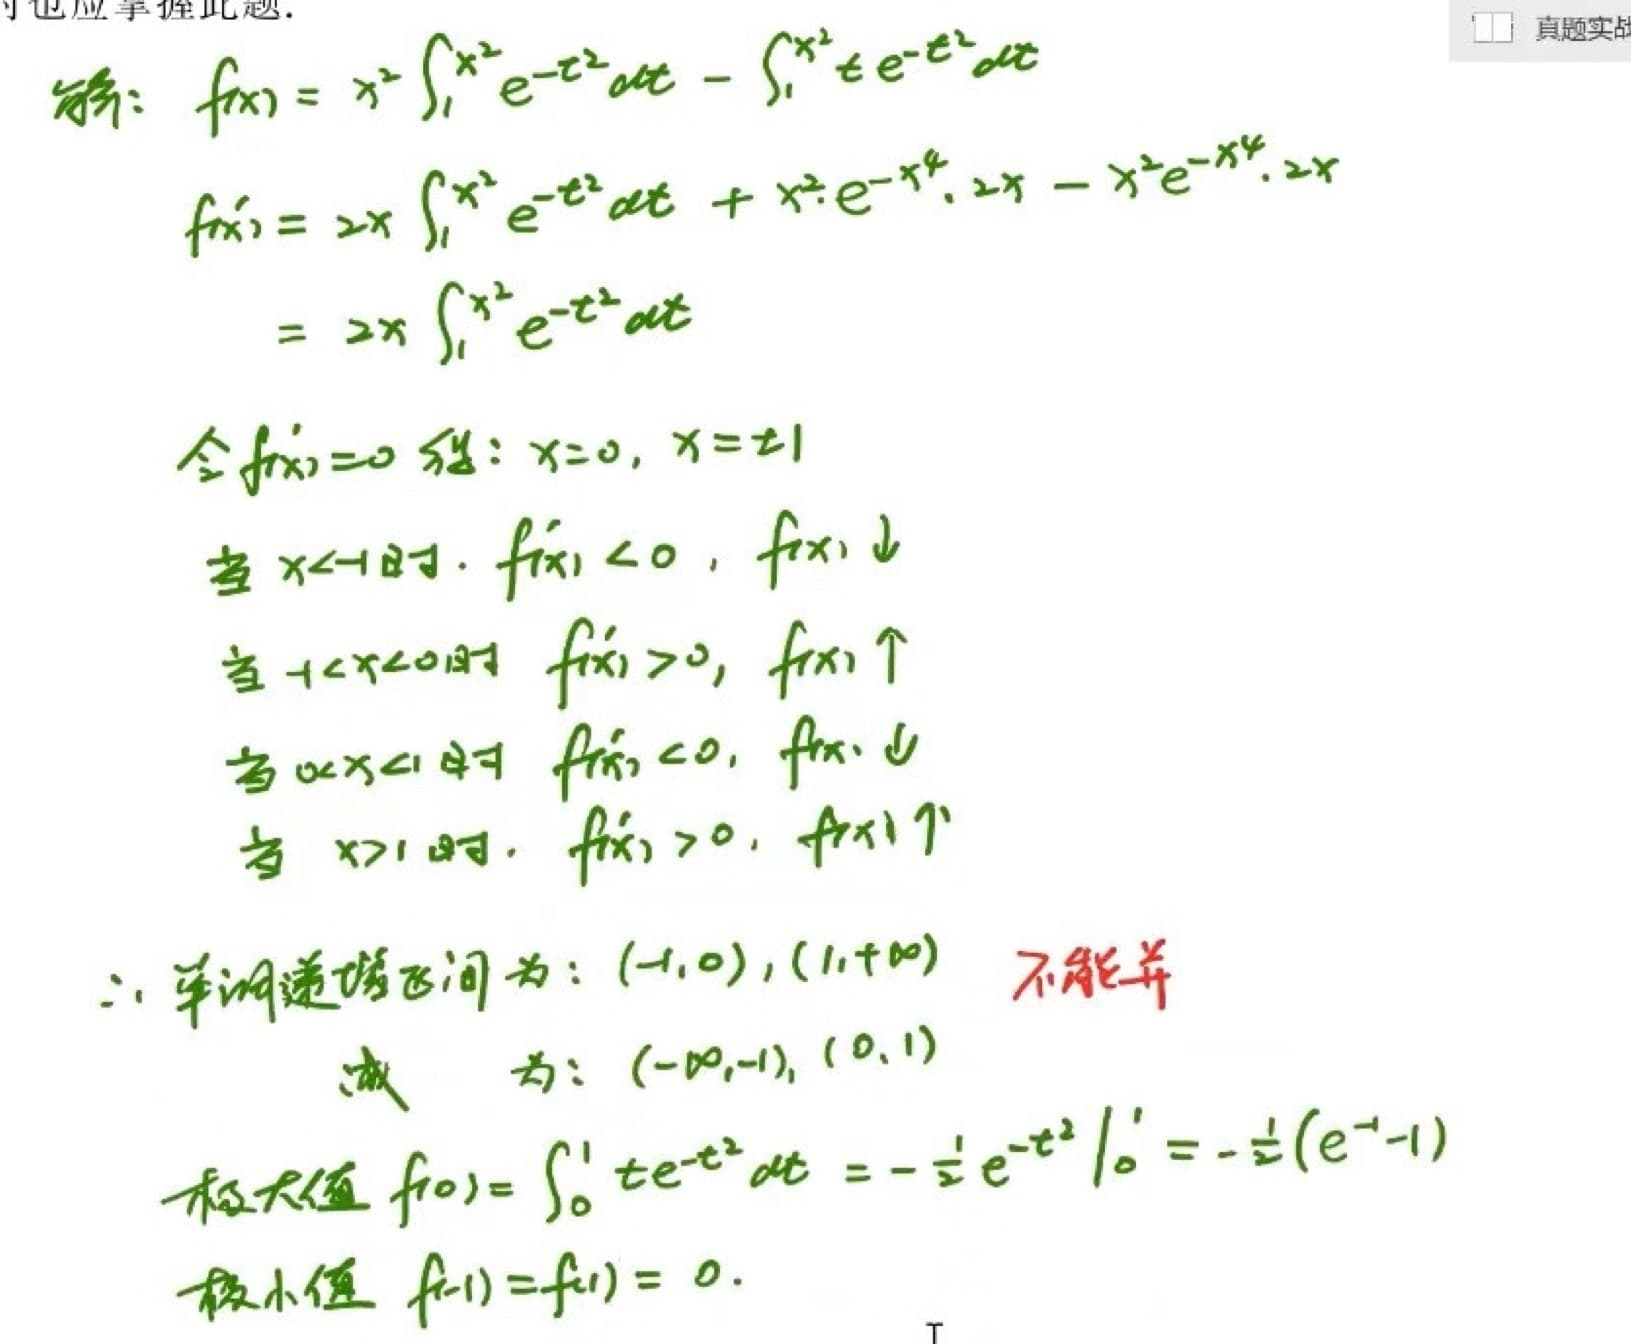 时也应掌握此题.
真题实战
解: f(x) = x² ∫₁^{x²} e^{-t²} dt - ∫₁^{x²} t e^{-t²} dt
f'(x) = 2x ∫₁^{x²} e^{-t²} dt + x²·e^{-x⁴}·2x - x²e^{-x⁴}·2x
= 2x ∫₁^{x²} e^{-t²} dt
令 f'(x)=0 得: x=0, x=±1
当 x<-1时. f'(x)<0, f(x)↓
当 -1<x<0时 f'(x)>0, f(x)↑
当 0<x<1时 f'(x)<0, f(x)↓
当 x>1时. f'(x)>0, f(x)↑
∴ 单调递增区间为: (-1,0), (1,+∞) 不能并
减 为: (-∞,-1), (0,1)
极大值 f(0) = ∫₀¹ te^{-t²} dt = -½ e^{-t²} |₀¹ = -½(e⁻¹-1)
极小值 f(-1) = f(1) = 0.